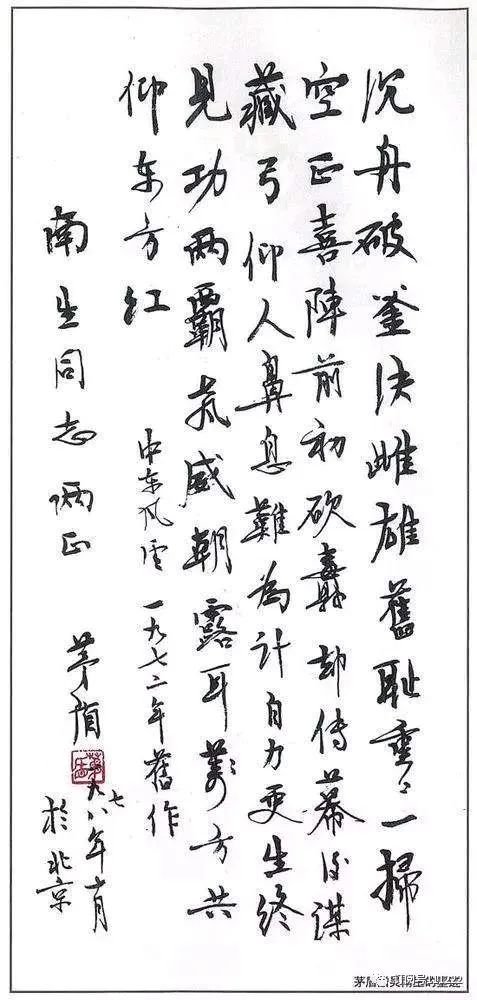 沉舟破釜决雌雄舊耻重〻一掃
空正喜陣前初砍纛却传幕後谋
藏弓仰人鼻息難為计自力更生终
见功两霸炁威朝露耳萬方共
仰东方红
中东风雲 一九七二年舊作
南生同志哂正
茅盾 一九七八年十月
於北京